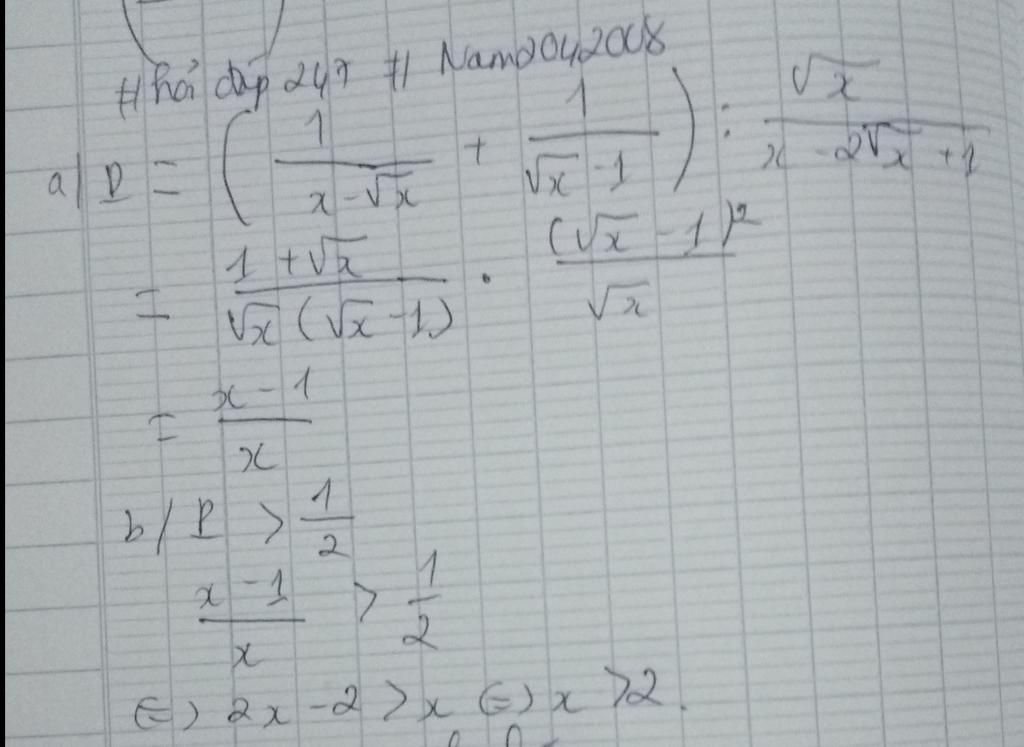 # hỏi đáp 247 # Nam2042008
a/ P = ( 1/(x - √x) + 1/(√x - 1) ) : √x/(x - 2√x + 1)
= (1 + √x)/(√x (√x - 1)) . (√x - 1)²/√x
= (x - 1)/x
b/ P > 1/2
(x - 1)/x > 1/2
⇔ 2x - 2 > x ⇔ x > 2.